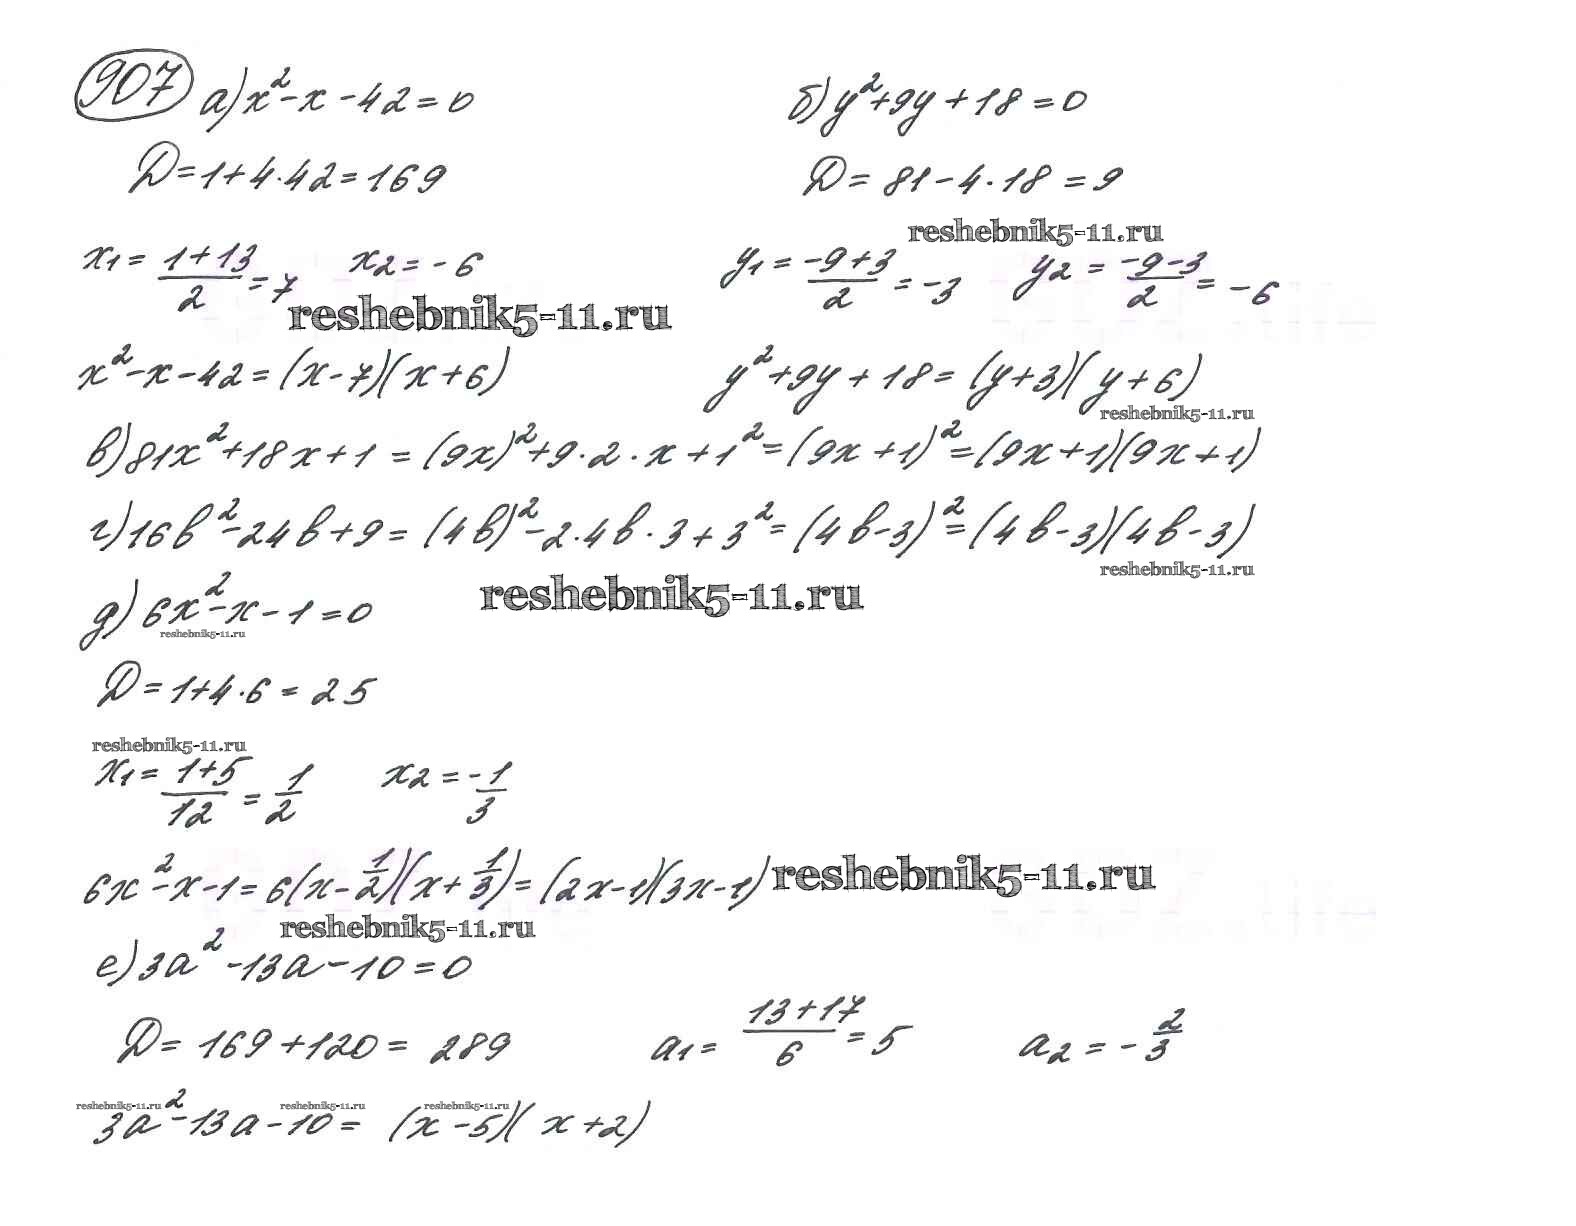 907 а) x²-x-42=0 б) y²+9y+18=0
D=1+4·42=169 D=81-4·18=9
reshebnik5-11.ru
x₁=(1+13)/2=7 x₂=-6 y₁=(-9+3)/2=-3 y₂=(-9-3)/2=-6
reshebnik5-11.ru
x²-x-42=(x-7)(x+6) y²+9y+18=(y+3)(y+6)
reshebnik5-11.ru
в) 81x²+18x+1=(9x)²+9·2·x+1²=(9x+1)²=(9x+1)(9x+1)
г) 16b²-24b+9=(4b)²-2·4b·3+3²=(4b-3)²=(4b-3)(4b-3)
reshebnik5-11.ru
reshebnik5-11.ru
д) 6x²-x-1=0
reshebnik5-11.ru
D=1+4·6=25
reshebnik5-11.ru
x₁=(1+5)/12=1/2 x₂=-1/3
6x²-x-1=6(x-1/2)(x+1/3)=(2x-1)(3x-1)
reshebnik5-11.ru
reshebnik5-11.ru
е) 3a²-13a-10=0
D=169+120=289 a₁=(13+17)/6=5 a₂=-2/3
reshebnik5-11.ru reshebnik5-11.ru reshebnik5-11.ru
3a²-13a-10=(x-5)(x+2)